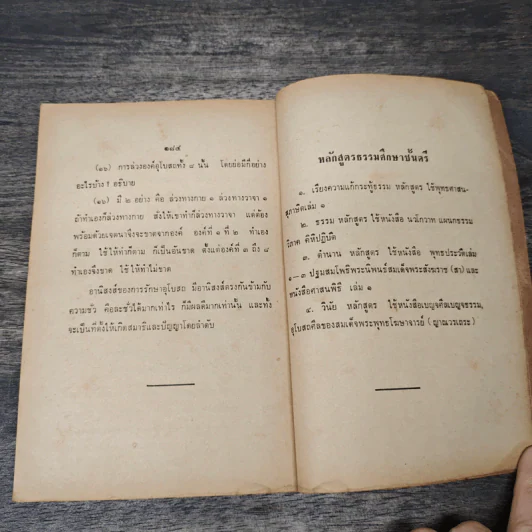 ๑๘๔
(๑๖) การล่วงองค์อุโบสถทั้ง ๘ นั้น โดยย่อมีกี่อย่าง
อะไรบ้าง ? อธิบาย
(๑๖) มี ๒ อย่าง คือ ล่วงทางกาย ๑ ล่วงทางวาจา ๑
ถ้าทำเองก็ล่วงทางกาย สั่งให้เขาทำก็ล่วงทางวาจา แต่ต้อง
พร้อมด้วยเจตนาจึงจะขาดจากองค์ องค์ที่ ๑ ที่ ๒ ทำเอง
ก็ตาม ใช้ให้ทำก็ตาม ก็เป็นอันขาด ตั้งแต่องค์ที่ ๓ ถึง ๘
ทำเองจึงขาด ใช้ให้ทำไม่ขาด
อานิสงส์ของการรักษาอุโบสถ มีอานิสงส์ตรงกันข้ามกับ
ความชั่ว คือละชั่วได้มากเท่าไร ก็มีผลดีมากเท่านั้น และทั้ง
จะเป็นที่ตั้งให้เกิดสมาธิและปัญญาโดยลำดับ
หลักสูตรธรรมศึกษาชั้นตรี
๑. เรียงความแก้กระทู้ธรรม หลักสูตร ใช้พุทธศาสน-
สุภาษิตเล่ม ๑
๒. ธรรม หลักสูตร ใช้หนังสือ นวโกวาท แผนกธรรม
วิภาค คิหิปฏิบัติ
๓. ตำนาน หลักสูตร ใช้หนังสือ พุทธประวัติเล่ม
๑—๓ ปฐมสมโพธิพระนิพนธ์สมเด็จพระสังฆราช (สา) และ
หนังสือศาสนพิธี เล่ม ๑
๔. วินัย หลักสูตร ใช้หนังสือเบญจศีลเบญจธรรม,
อุโบสถศีลของสมเด็จพระพุทธโฆษาจารย์ (ญาณวรเถระ)